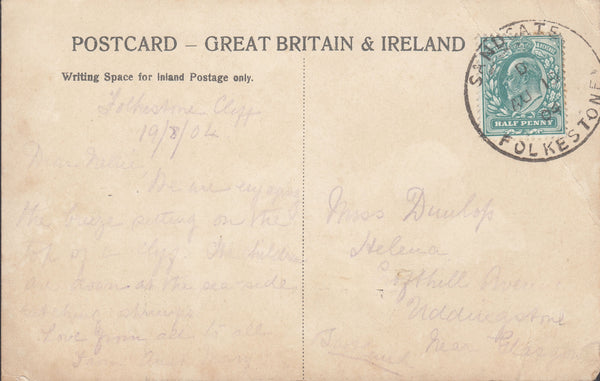 POSTCARD – GREAT BRITAIN & IRELAND
Writing Space for Inland Postage only.
SANDGATE
FOLKESTONE
HALF PENNY
Folkestone Cliff
19/8/04
We are enjoying
the breeze sitting on the
top of a cliff. The children
are down at the sea side
Love from all to all
Miss Dunlop
Helena
Uddingstone
Near Glasgow